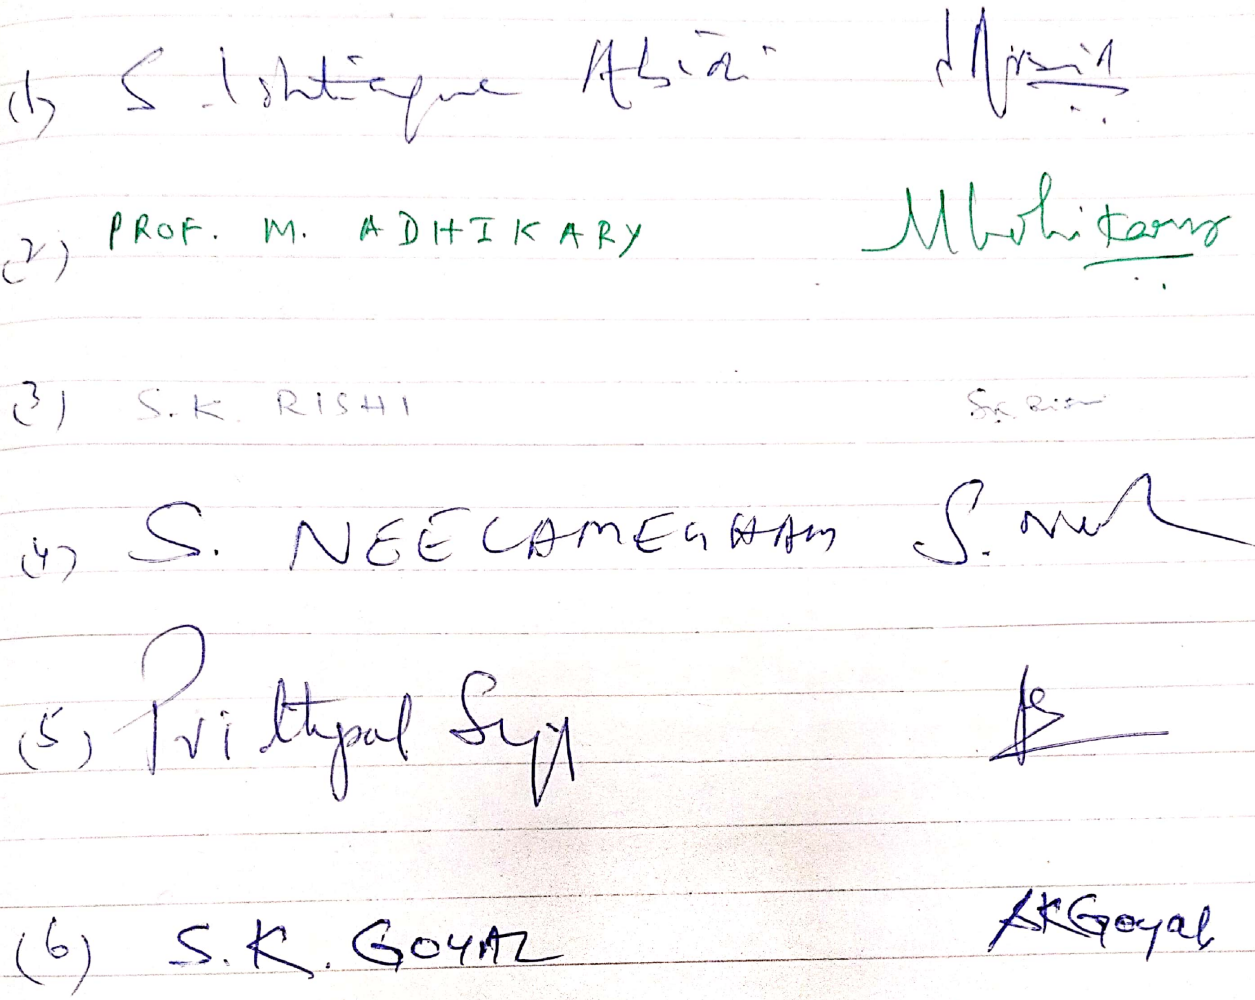 (1) S. Ishtiaque Abidi
(2) PROF. M. ADHIKARY MAdhikary
(3) S.K. RISHI
(4) S. NEELAMEGHAM S.
(5) Prithpal Singh
(6) S.K. GOYAL SKGoyal